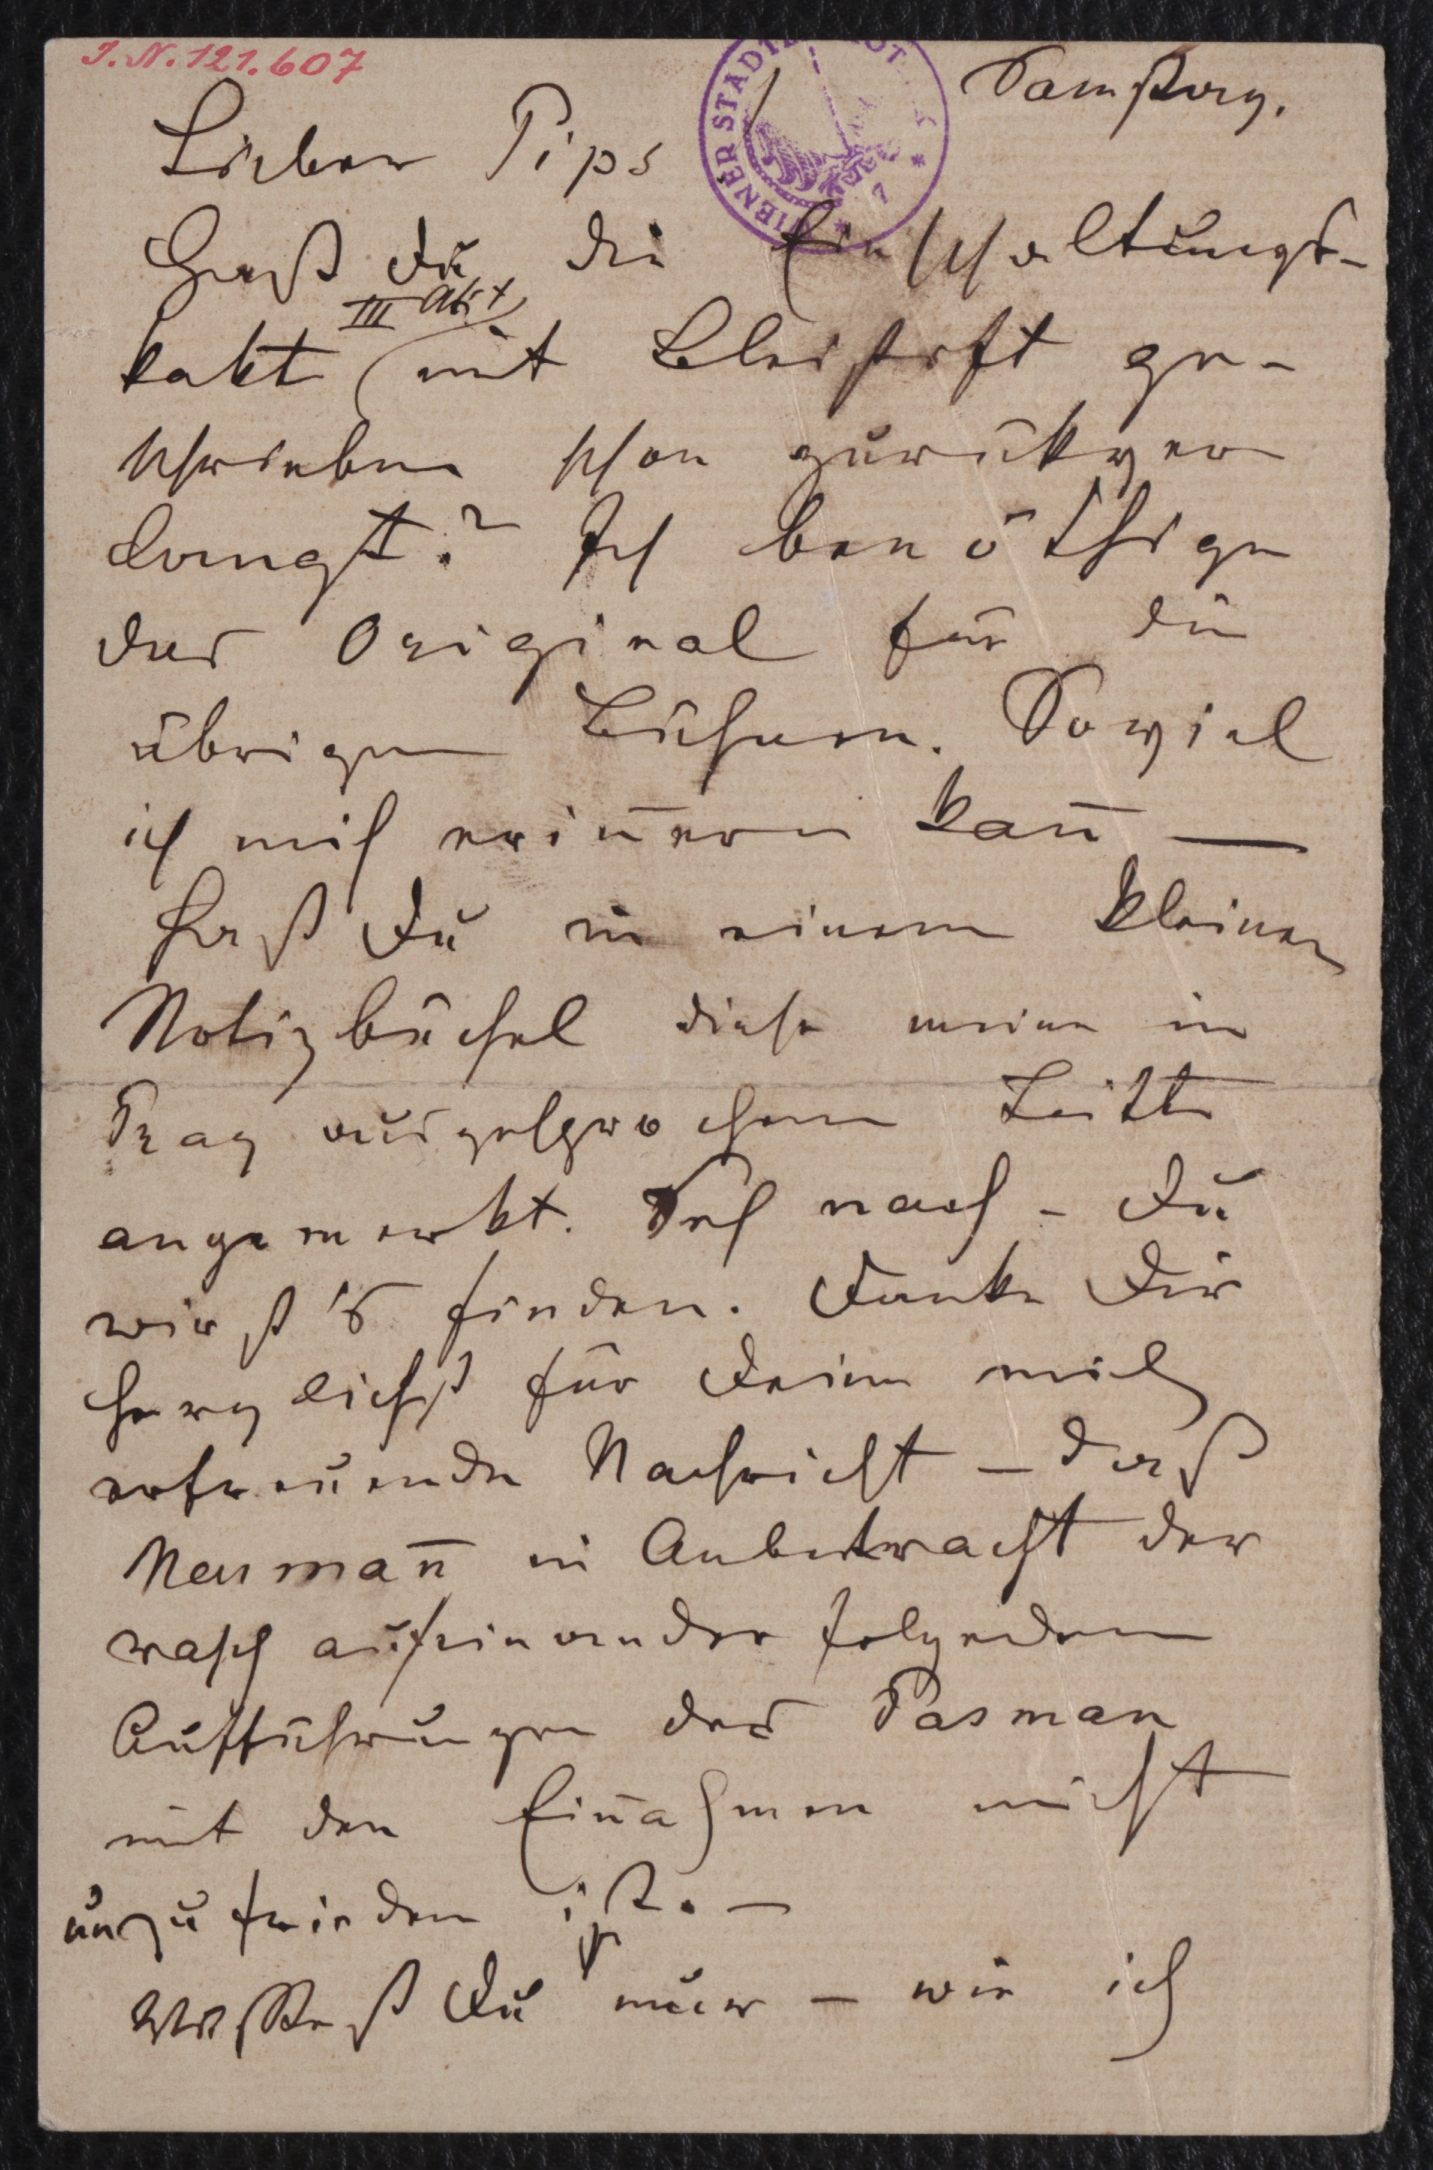 I.N. 121.607
Samstag.
WIENER STADTBIBLIOT
Lieber Pips!
Hast Du die Einschaltungs-
III Akt
takte mit Bleistift ge-
schrieben schon zurückver
langt? Ich benöthige
das Original für die
übrigen Bühnen. Soviel
ich mich erin̄ern kan̄ —
hast Du in einem kleinen
Notizbüchel diese meine in
Prag ausgesprochene Bitte
angemerkt. Seh nach - Du
wirst's finden. Danke Dir
herzlichst für Deine mich
erfreuende Nachricht – daß
Neuman̄ in Anbetracht der
rasch aufeinander folgenden
Aufführungen des Pasman
mit den Ein̄ahmen nicht
unzufrieden ist. —
Wüßtest Du nur – wie ich